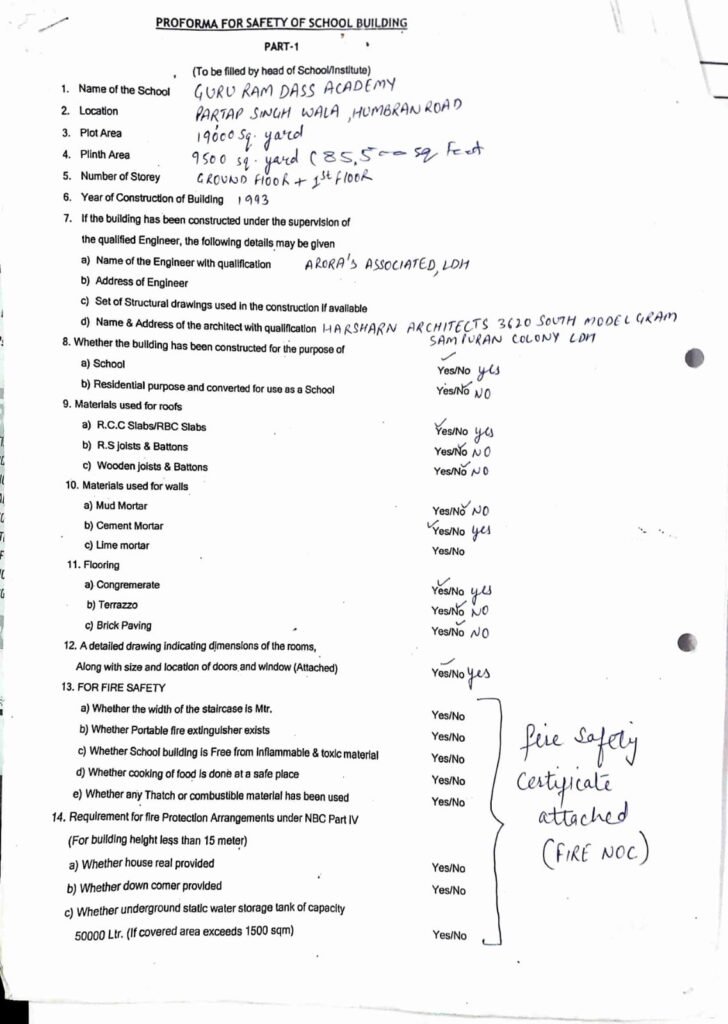 PROFORMA FOR SAFETY OF SCHOOL BUILDING
PART-1
(To be filled by head of School/Institute)
1. Name of the School GURU RAM DASS ACADEMY
2. Location PARTAP SINGH WALA, HUMBRAN ROAD
3. Plot Area 19000 Sq. yard
4. Plinth Area 9500 sq. yard (85,500 sq Feet
5. Number of Storey GROUND FLOOR + 1st FLOOR
6. Year of Construction of Building 1993
7. If the building has been constructed under the supervision of
the qualified Engineer, the following details may be given
a) Name of the Engineer with qualification ARORA'S ASSOCIATED, LDH
b) Address of Engineer
c) Set of Structural drawings used in the construction if available
d) Name & Address of the architect with qualification HARSHARN ARCHITECTS 3620 SOUTH MODEL GRAM
SAMPURAN COLONY LDH
8. Whether the building has been constructed for the purpose of
a) School Yes/No yes
b) Residential purpose and converted for use as a School Yes/No NO
9. Materials used for roofs
a) R.C.C Slabs/RBC Slabs Yes/No yes
b) R.S joists & Battons Yes/No NO
c) Wooden joists & Battons Yes/No NO
10. Materials used for walls
a) Mud Mortar Yes/No NO
b) Cement Mortar Yes/No yes
c) Lime mortar Yes/No
11. Flooring
a) Congremerate Yes/No yes
b) Terrazzo Yes/No NO
c) Brick Paving Yes/No NO
12. A detailed drawing indicating dimensions of the rooms,
Along with size and location of doors and window (Attached) Yes/No yes
13. FOR FIRE SAFETY
a) Whether the width of the staircase is Mtr. Yes/No
b) Whether Portable fire extinguisher exists Yes/No
c) Whether School building is Free from Inflammable & toxic material Yes/No
d) Whether cooking of food is done at a safe place Yes/No
e) Whether any Thatch or combustible material has been used Yes/No
14. Requirement for fire Protection Arrangements under NBC Part IV
(For building height less than 15 meter)
a) Whether house real provided Yes/No
b) Whether down comer provided Yes/No
c) Whether underground static water storage tank of capacity
50000 Ltr. (If covered area exceeds 1500 sqm) Yes/No
fire Safety
Certificate
attached
(FIRE NOC)